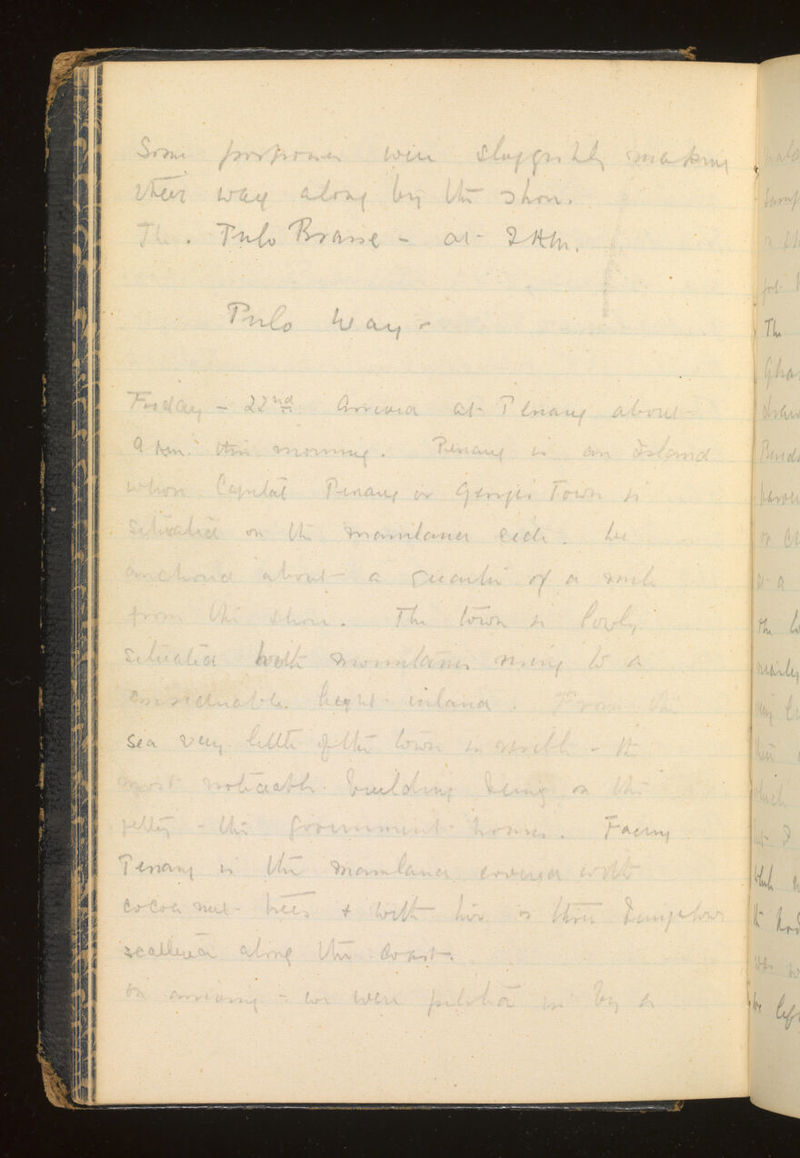 Some porpoises were sluggishly making
their way along by the shore.
The. Pulo Brasse - at 2 AM.
Pulo Way -
Friday - 22nd. Arrived at Penang about
9 Am. this morning. Penang is an Island
whose Capital Penang or George's Town is
situated on the mainland side. We
anchored about a quarter of a mile
from the shore. The town is lowly
situated with mountains rising to a
considerable height inland. From the
sea very little of the town is visible - the
most noticeable building being on the
jetty - the government houses. Facing
Penang is the mainland covered with
cocoa nut trees & with two or three bungalows
scattered along the coast.
On arriving - we were piloted in by a